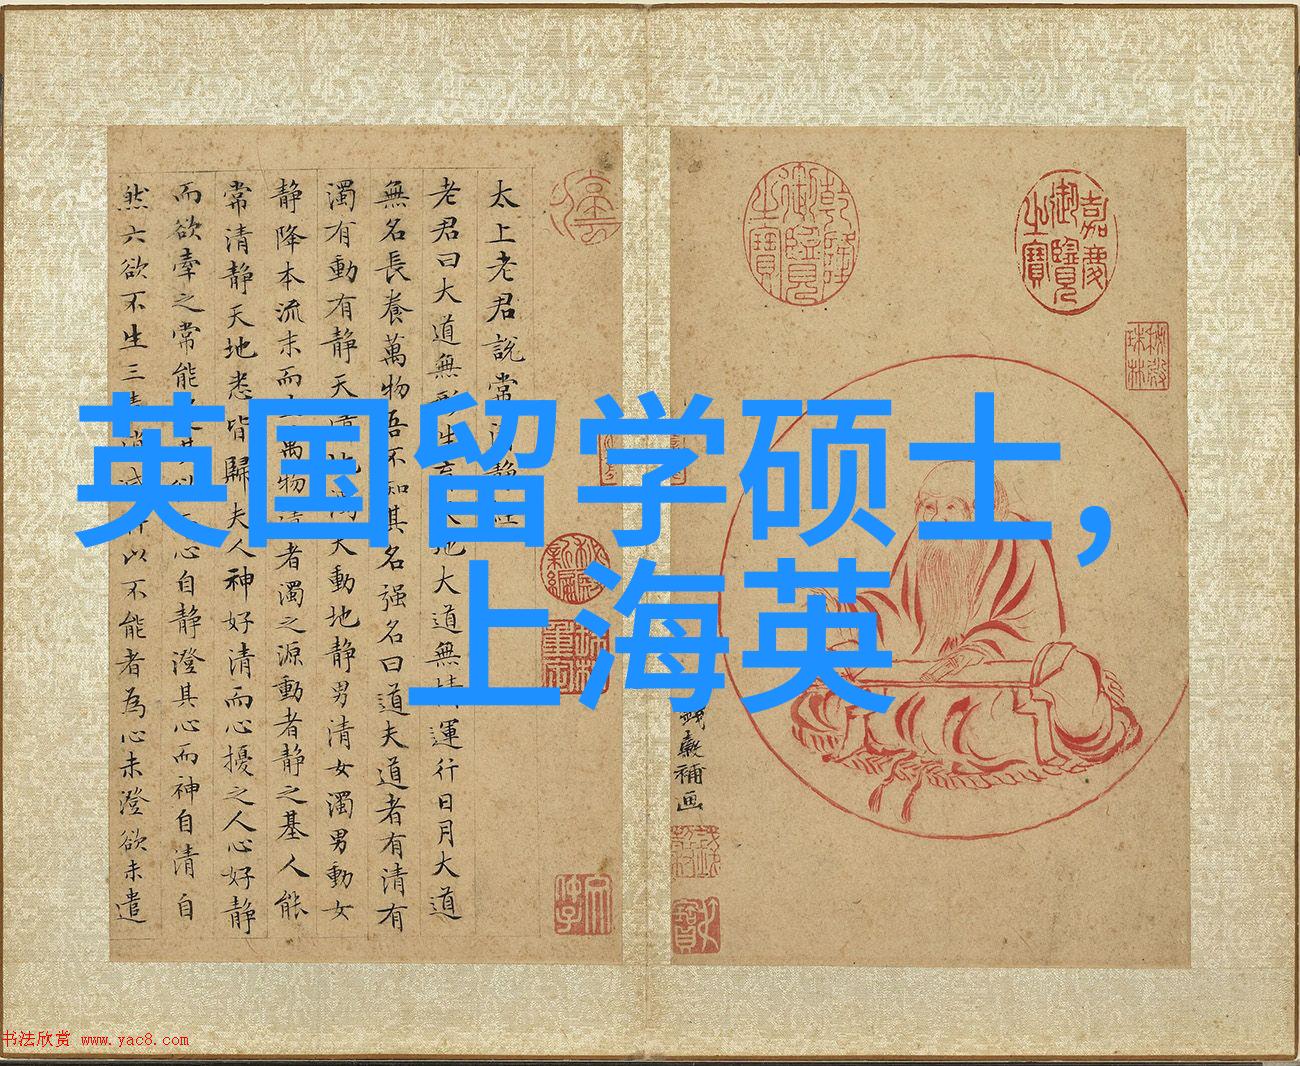 英国留学硕士，
上海英
太上老君說常清静經
老君曰大道無形生育天地大道無情運行日月大道
無名長養萬物吾不知其名强名曰道夫道者有清有
濁有動有静天清地濁天動地静男清女濁男動女
静降本流末而生萬物清者濁之源動者静之基人能
常清静天地悉皆歸夫人神好清而心擾之人心好静
而欲牽之常能心自静澄其心而神自清自
然六欲不生三以不能者為心未澄欲未遣
乾隆御覽之寶
嘉慶御覽之寶
秘殿珠林
錢穀補画
书法欣赏 www.yac8.com